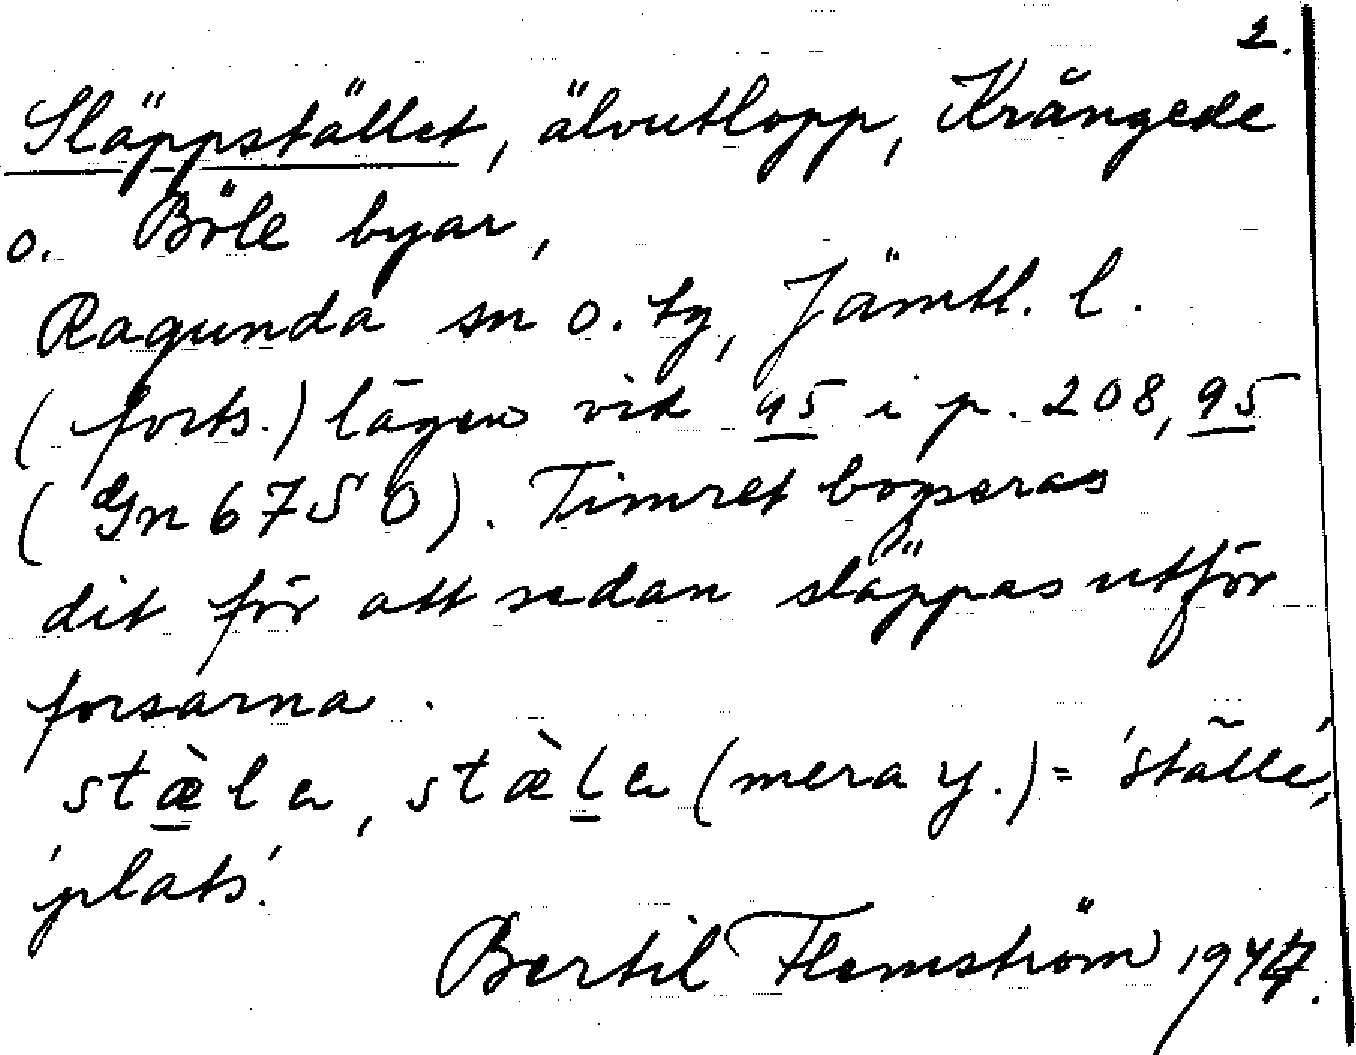 2.
Släppstället, älvutlopp, Krångede
o. Böle byar,
Ragunda sn o. tg, Jämtl. l.
(forts.) lägen vid 95 i p. 208, 95
(Gn 6750). Timret bogseras
dit för att sedan släppas utför
forsarna.
stæ̀la, stæ̀la (mera y.) = 'ställe',
'plats'.
Bertil Flemström